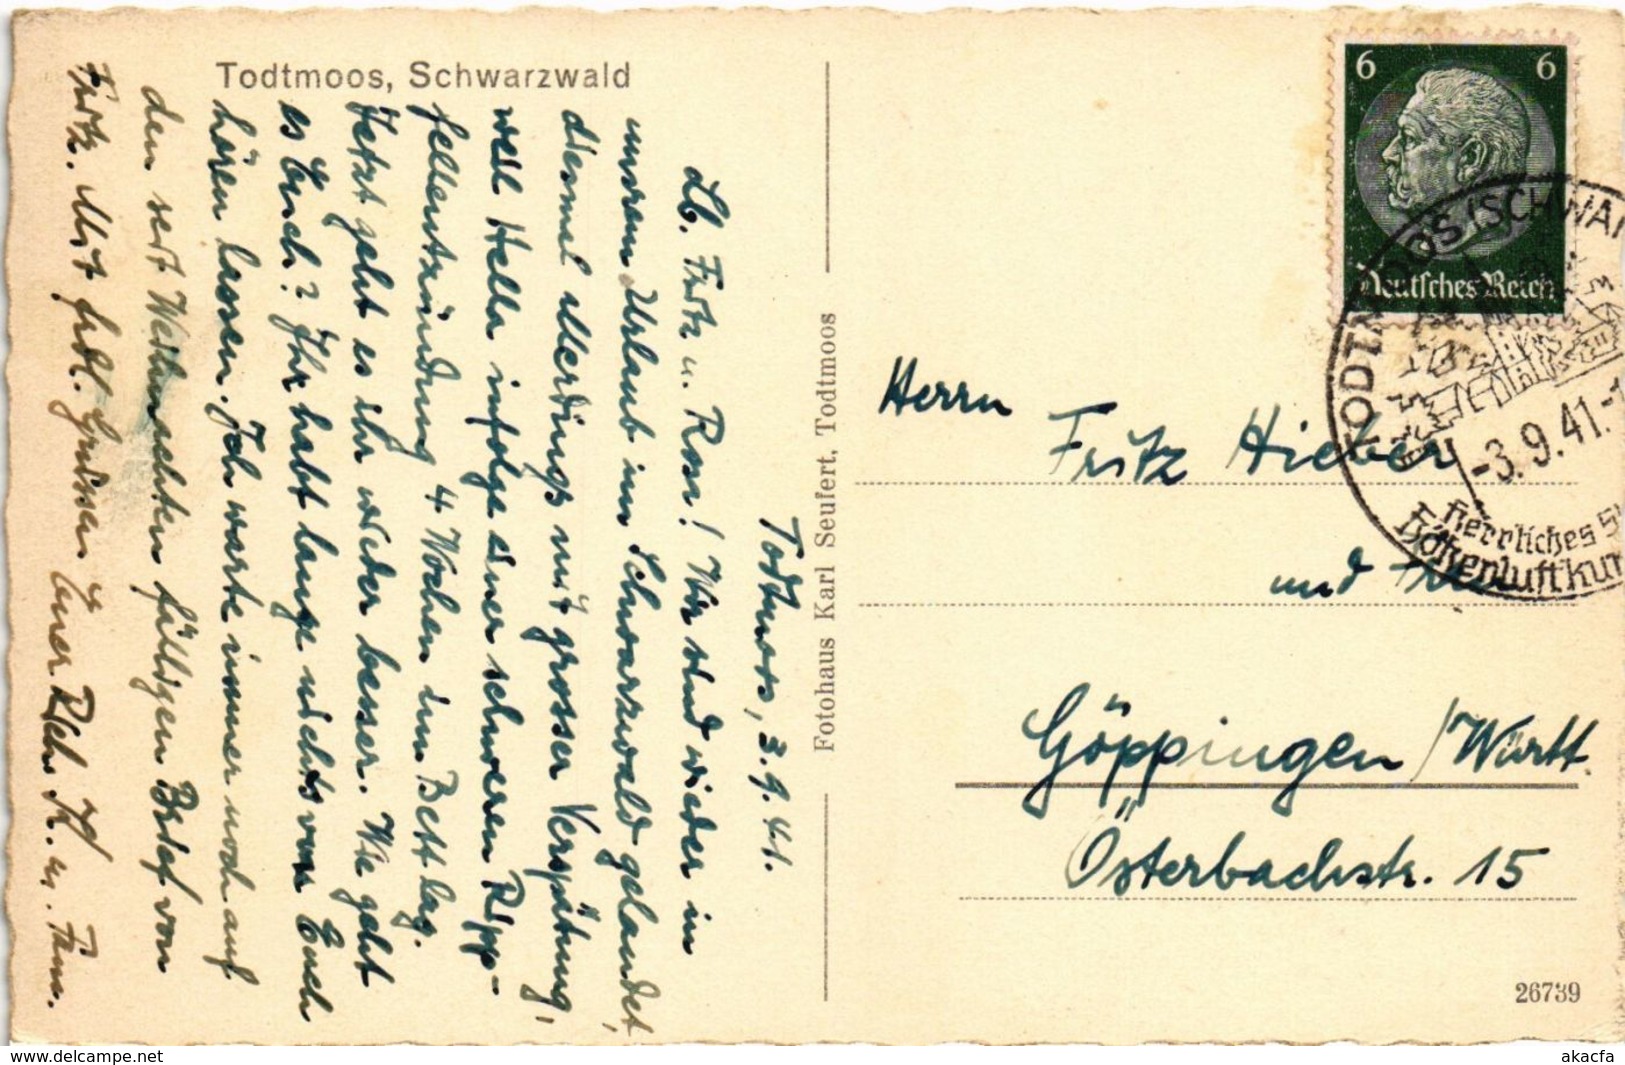 Todtmoos, Schwarzwald
Todtmoos, 3.9.41.
Lb. Fritz u. Rosa! Wir sind wieder in
unsrem Urlaub im Schwarzwald gelandet,
diesmal allerdings mit grosser Verspätung,
weil Hella infolge einer schweren Ripp-
fellentzündung 4 Wochen im Bett lag.
Jetzt geht es ihr wieder besser. Wie geht
es Euch? Ihr habt lange nichts von Euch
hören lassen. Ich warte immer noch auf
den seit Weihnachten fälligen Brief von
Fritz. Mit frdl. Grüssen Euer Rich. K. u. Fam.
Fotohaus Karl Seufert, Todtmoos
6 6
Deutsches Reich
TODTMOOS (SCHWAR
-3.9.41.-1
Herrliches S
Höhenluftkur
Herrn
Fritz Hieber
und Frau
Göppingen/Württ.
Osterbachstr. 15
26739
akacfa